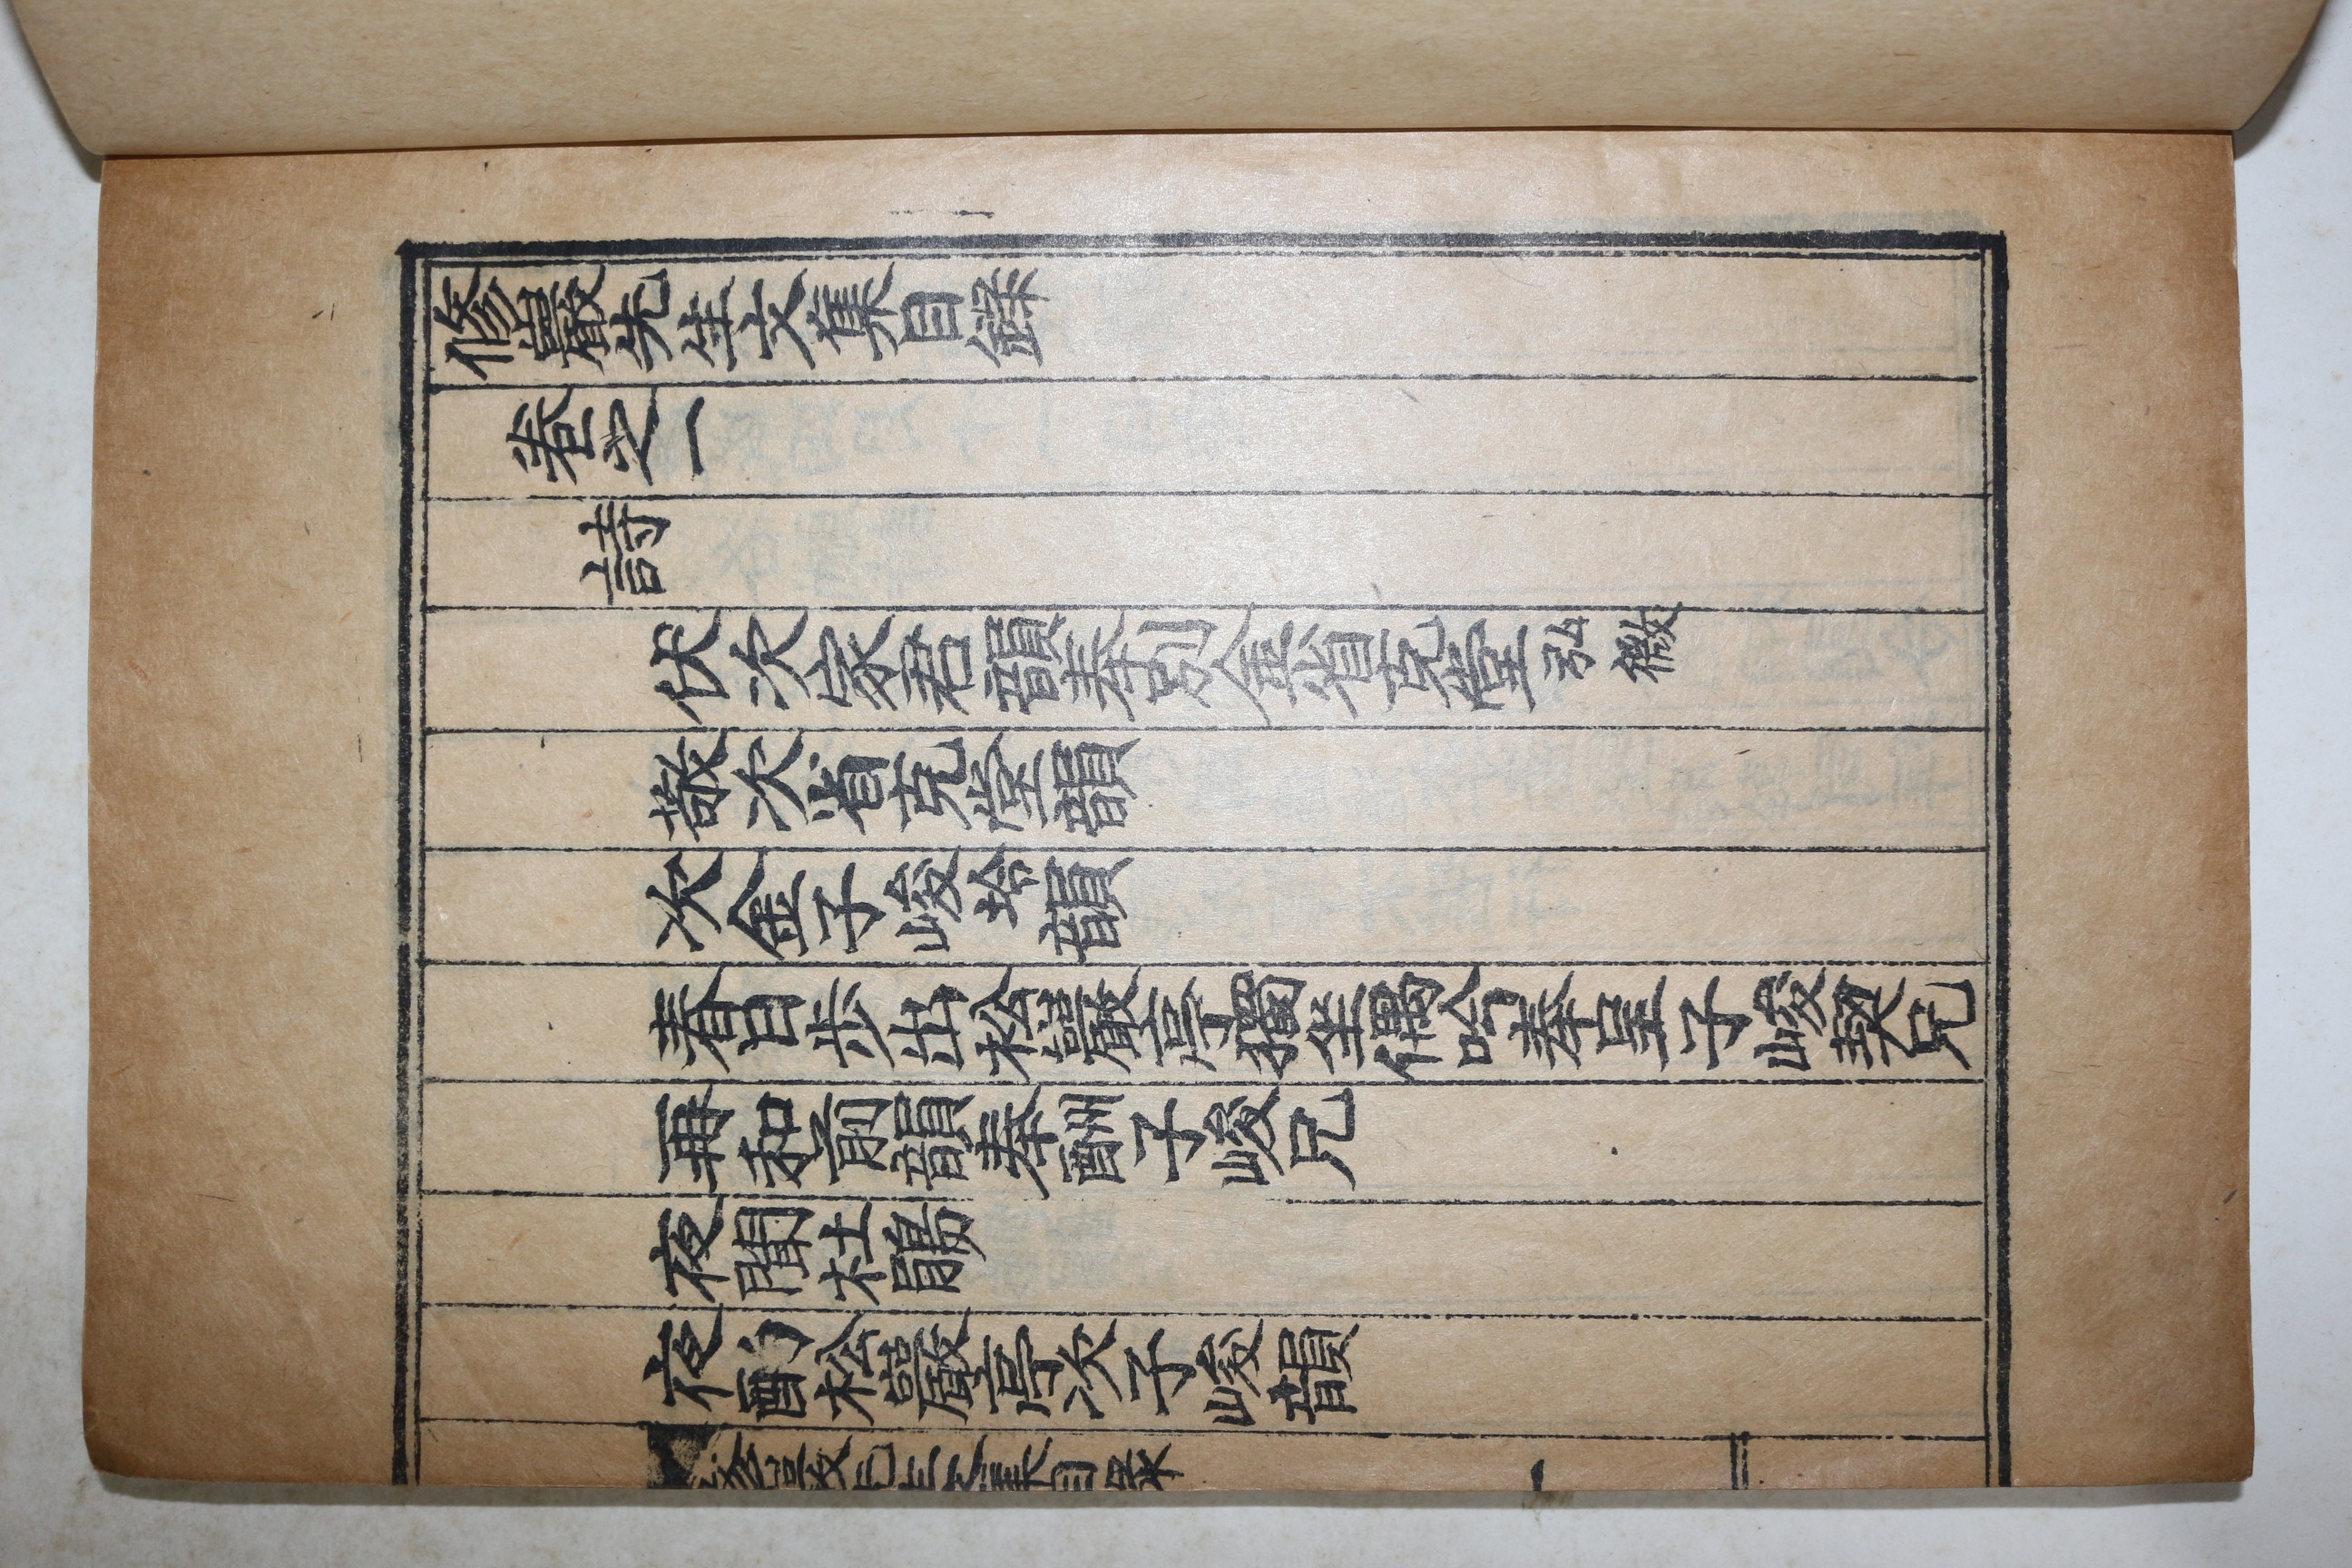 修巖先生文集目錄
卷之一
詩
伏次家君韻奉別金省克堂弘微
敬次省克堂韻
次金子峻坽韻
春日步出松巖亭獨坐偶吟奉呈子峻契兄
再和前韻奉酬子峻兄
夜聞杜鵑
夜酌松巖亭次子峻韻
修巖先生文集目錄 一